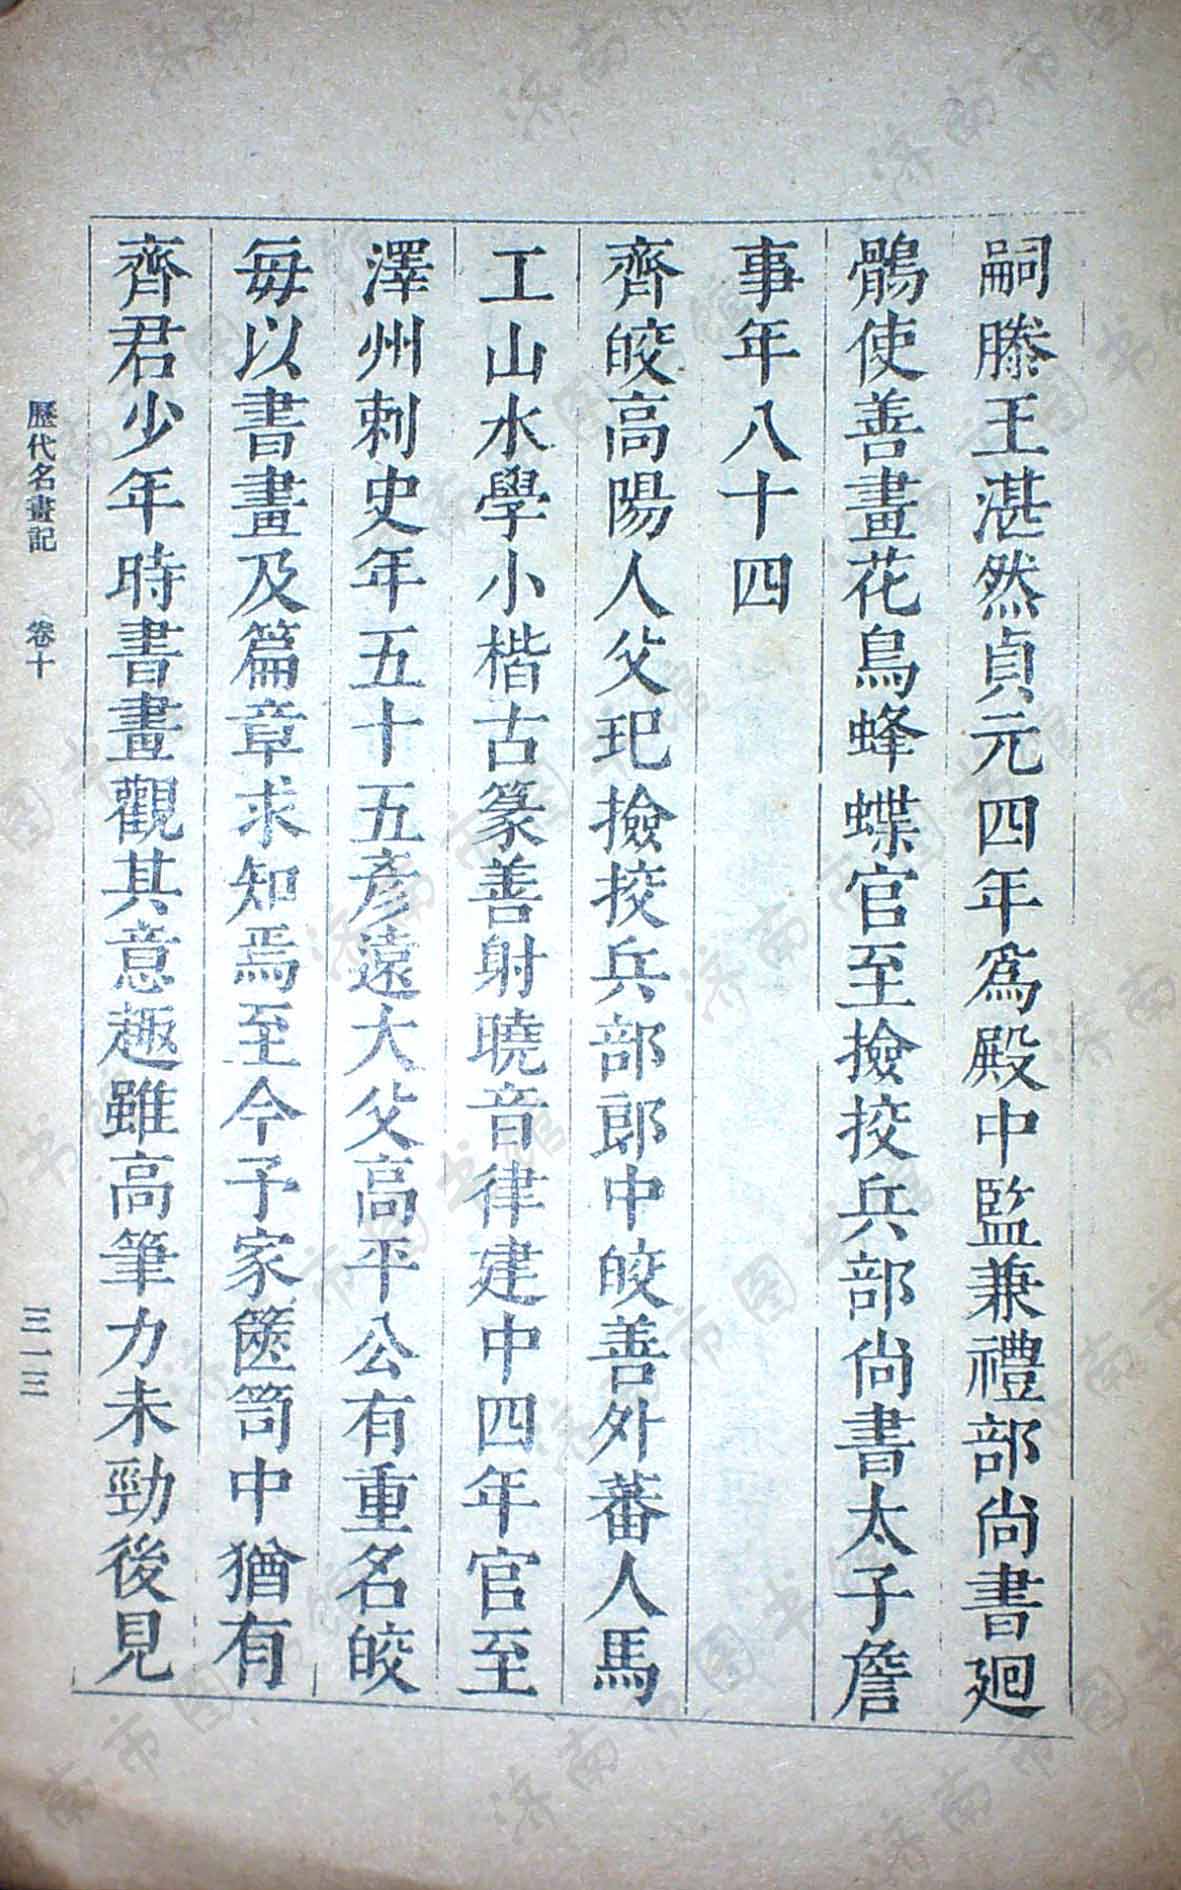 嗣滕王湛然貞元四年為殿中監兼禮部尚書廻
鶻使善畫花鳥蜂蝶官至撿挍兵部尚書太子詹
事年八十四
齊皎高陽人父玘撿挍兵部郎中皎善外蕃人馬
工山水學小楷古篆善射曉音律建中四年官至
澤州刺史年五十五彥遠大父高平公有重名皎
每以書畫及篇章求知焉至今予家篋笥中猶有
齊君少年時書畫觀其意趣雖高筆力未勁後見
歷代名畫記 卷十 三一三
济南市图书馆